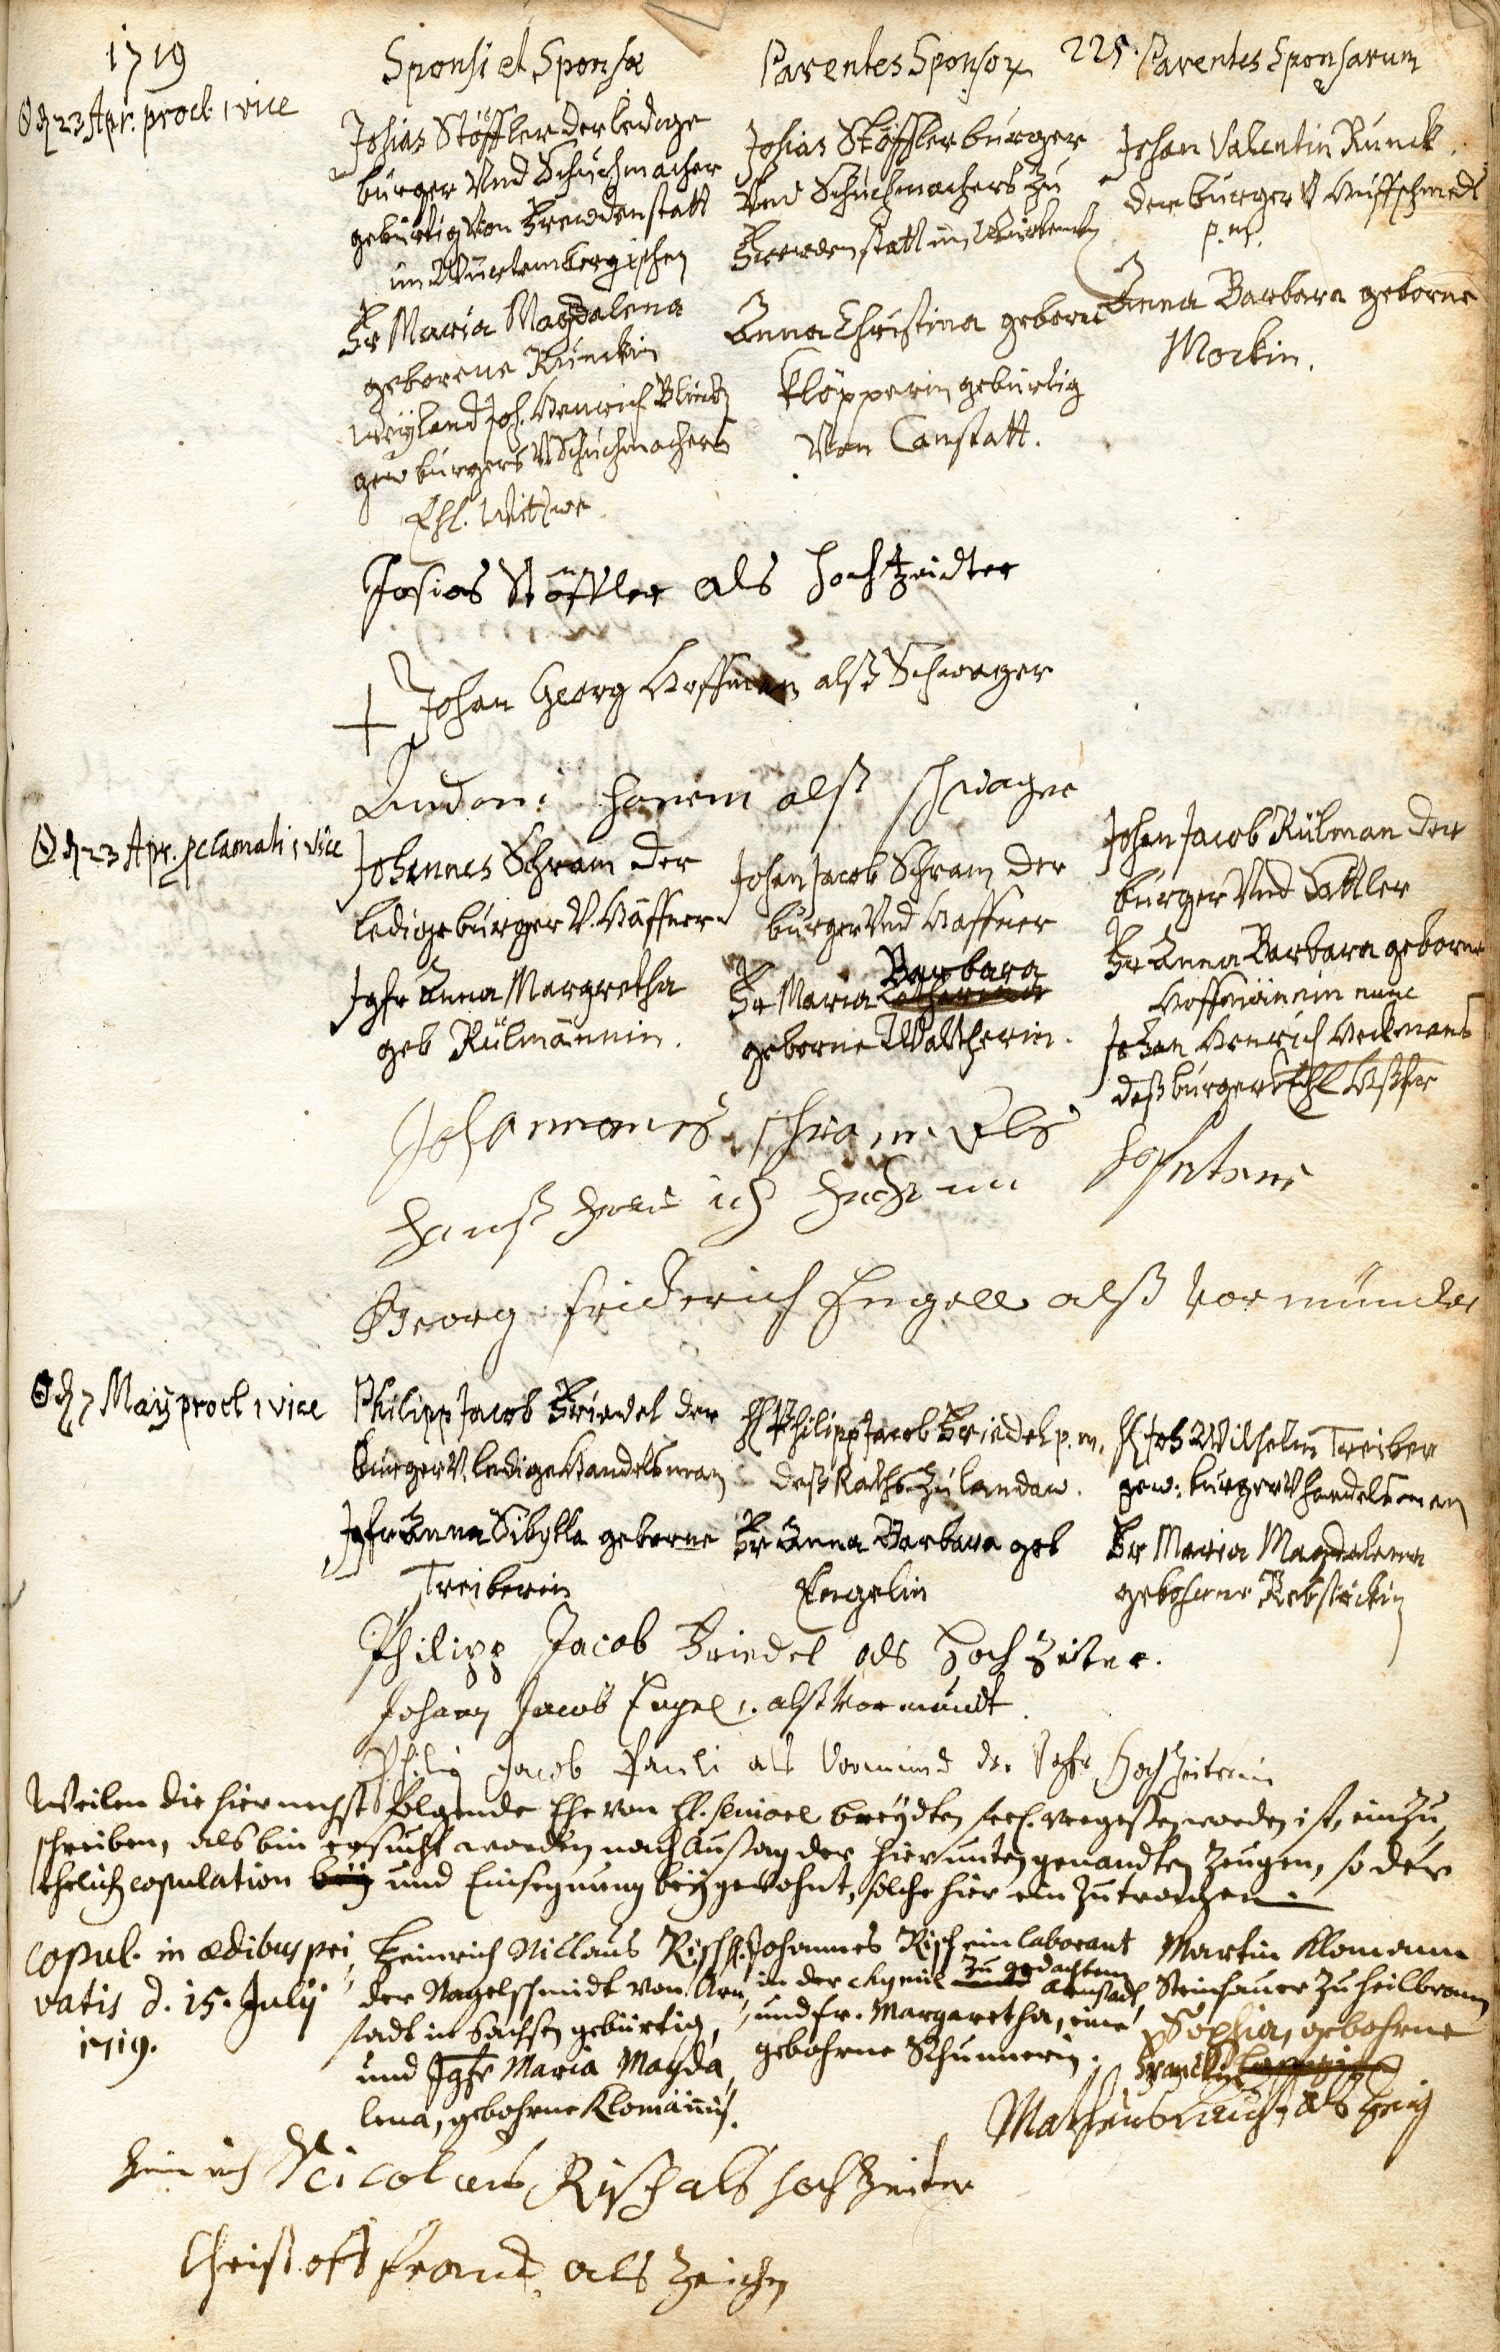 1719
Sponsi et Sponsæ
Parentes Sponsor.
225.
Parentes Sponsarum
☉ d 23 Apr. procl. 1 vice
Josias Stöffler der ledige
burger Vnd Schuchmacher
gebürtig von Freudenstatt
im Würtembergischen
Fr Maria Magdalena
geborene Runckin
weyland Joh. Henrich
gew burgers V Schuchmachers
Ehl. Wittwe
Josias Stöffler burger
Vnd Schuchmachers zu
Freudenstatt im
Anna Christina geborne
Klöpperin gebürtig
Von Canstatt.
Johan Valentin Runck
der burger V Huffschmidt
p. m.
Anna Barbara geborne
Mockin.
Josias Stöffler als hochtzeidter
Johan Georg Hoffman alß Schwager
alß schwager
☉ d 23 Apr. pclamati 1 vice
Johannes Schram der
ledige burger V. Häffner
Jgfr Anna Margretha
geb Rülmännin.
Johan Jacob Schram der
burger Vnd Haffner
Fr Maria Barbara
geborne Waltherin.
Johan Jacob Rülman der
burger Vnd Sattler
Fr Anna Barbara geborne
Hoffmännin nunc
Johan Henrich
deß burgers Ehl
Johannes schram Als
hanß
Georg friderich Engell alß Vormünder
☉ d 7 Maÿ procl 1 vice
Philipp Jacob Briedel der
burger V. ledige Handelsman
Jgfr Anna Sibylla geborne
Treiberin
H Philipp Jacob Briedel p. m.
deß Raths zu landaw.
Fr Anna Barbara geb
Engelin
H Joh Wilhelm Treiber
gew. burger V handelsman
Fr Maria Magdalena
gebohrne Rebstöckin
Philipp Jacob Briedel als Hochzeiter.
Johann Jacob Engel alß Vormundt.
Philip Jacob Pauli als Vormund der Jgfr Hochzeiterin
Weilen die hiernechst folgende Ehe von H. seniore seel. vergeßen worden ist, einzu
schreiben, als bin ersucht worden nach Außag der hierunten genandten Zeugen, so der
ehelich copulation und Einsegnung beygewohnt, solche hier ein zutragen.
Copul. in ædibus pri
vatis d. 15. Julÿ
1719.
Heinrich Niclaus Risch
der Nagelschmidt von Arn
stadt in Sachsen gebürtig,
und Jgfr Maria Magda
lena, gebohrne Klomännin.
H. Johannes Risch ein laborant
in der chymie zu gedachtem Arnstadt
und fr. Margaretha, eine
gebohrne Schunnerin.
Martin Klomann
Steinhauer zu Heilbronn
Sophia, gebohrne
als Zeug
Heinrich Nicolaus Risch als hochzeiter
Christoff als Zeichen